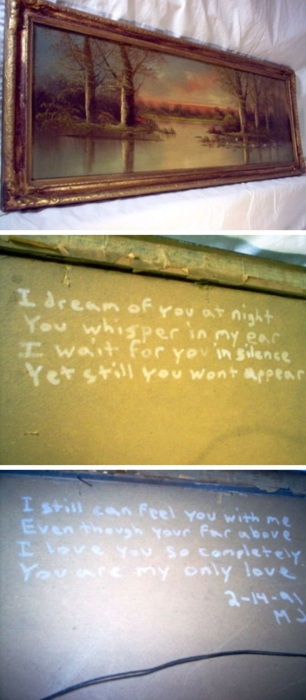 I dream of you at night
You whisper in my ear
I wait for you in silence
Yet still you wont appear
I still can feel you with me
Even though your far above
I love you so completely
You are my only love
2-14-91
MJ